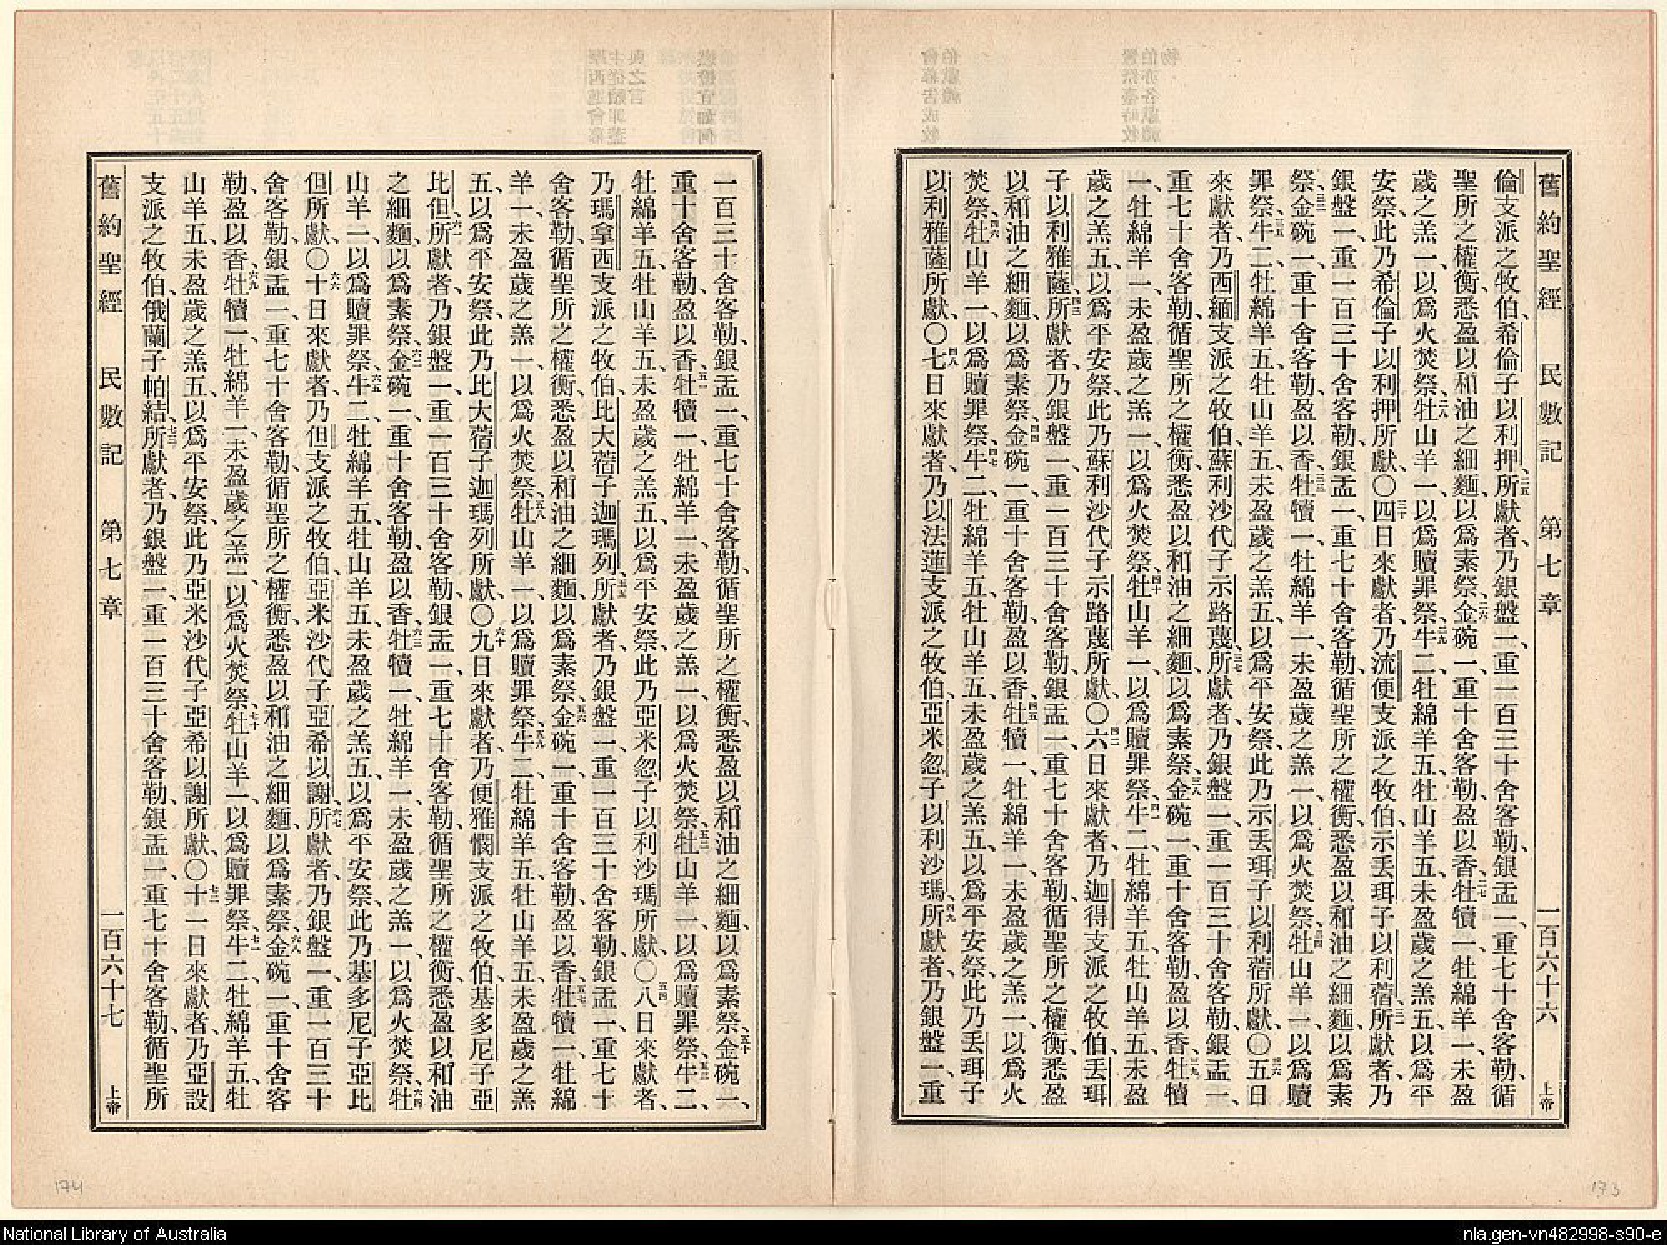 舊約聖經 民數記 第七章 一百六十六 上帝
倫支派之牧伯、希倫子以利押、二五所獻者、乃銀盤一、重一百三十舍客勒、銀盂一、重七十舍客勒、循
聖所之權衡、悉盈以和油之細麵、以爲素祭、二六金碗一、重十舍客勒、盈以香、二七牡犢一、牡綿羊一、未盈
歲之羔一、以爲火焚祭、二八牡山羊一、以爲贖罪祭、二九牛二、牡綿羊五、牡山羊五、未盈歲之羔五、以爲平
安祭、此乃希倫子以利押所獻〇三十四日來獻者、乃流便支派之牧伯示丟珥子以利蓿、三一所獻者、乃
銀盤一、重一百三十舍客勒、銀盂一、重七十舍客勒、循聖所之權衡、悉盈以和油之細麵、以爲素
祭、三二金碗一、重十舍客勒、盈以香、三三牡犢一、牡綿羊一、未盈歲之羔一、以爲火焚祭、三四牡山羊一、以爲贖
罪祭、三五牛二、牡綿羊五、牡山羊五、未盈歲之羔五、以爲平安祭、此乃示丟珥子以利蓿所獻〇三六五日
來獻者、乃西緬支派之牧伯、蘇利沙代子示路蔑、三七所獻者、乃銀盤一、重一百三十舍客勒、銀盂一、
重七十舍客勒、循聖所之權衡、悉盈以和油之細麵、以爲素祭、三八金碗一、重十舍客勒、盈以香、三九牡犢
一、牡綿羊一、未盈歲之羔一、以爲火焚祭、四十牡山羊一、以爲贖罪祭、四一牛二、牡綿羊五、牡山羊五、未盈
歲之羔五、以爲平安祭、此乃蘇利沙代子示路蔑所獻〇四二六日來獻者、乃迦得支派之牧伯、丟珥
子以利雅薩、四三所獻者、乃銀盤一、重一百三十舍客勒、銀盂一、重七十舍客勒、循聖所之權衡、悉盈
以和油之細麵、以爲素祭、四四金碗一、重十舍客勒、盈以香、四五牡犢一、牡綿羊一、未盈歲之羔一、以爲火
焚祭、四六牡山羊一、以爲贖罪祭、四七牛二、牡綿羊五、牡山羊五、未盈歲之羔五、以爲平安祭、此乃丟珥子
以利雅薩所獻〇四八七日來獻者、乃以法蓮支派之牧伯、亞米忽子以利沙瑪、四九所獻者、乃銀盤一、重
一百三十舍客勒、銀盂一、重七十舍客勒、循聖所之權衡、悉盈以和油之細麵、以爲素祭、五十金碗一、
重十舍客勒、盈以香、五一牡犢一、牡綿羊一、未盈歲之羔一、以爲火焚祭、五二牡山羊一、以爲贖罪祭、五三牛二、
牡綿羊五、牡山羊五、未盈歲之羔五、以爲平安祭、此乃亞米忽子以利沙瑪所獻〇五四八日來獻者、
乃瑪拿西支派之牧伯、比大蓿子迦瑪列、五五所獻者、乃銀盤一、重一百三十舍客勒、銀盂一、重七十
舍客勒、循聖所之權衡、悉盈以和油之細麵、以爲素祭、五六金碗一、重十舍客勒、盈以香、五七牡犢一、牡綿
羊一、未盈歲之羔一、以爲火焚祭、五八牡山羊一、以爲贖罪祭、五九牛二、牡綿羊五、牡山羊五、未盈歲之羔
五、以爲平安祭、此乃比大蓿子迦瑪列所獻〇六十九日來獻者、乃便雅憫支派之牧伯、基多尼子亞
比但、六一所獻者、乃銀盤一、重一百三十舍客勒、銀盂一、重七十舍客勒、循聖所之權衡、悉盈以和油
之細麵、以爲素祭、六二金碗一、重十舍客勒、盈以香、六三牡犢一、牡綿羊一、未盈歲之羔一、以爲火焚祭、六四牡
山羊一、以爲贖罪祭、六五牛二、牡綿羊五、牡山羊五、未盈歲之羔五、以爲平安祭、此乃基多尼子亞比
但所獻〇六六十日來獻者、乃但支派之牧伯、亞米沙代子亞希以謝、六七所獻者、乃銀盤一、重一百三十
舍客勒、銀盂一、重七十舍客勒、循聖所之權衡、悉盈以和油之細麵、以爲素祭、六八金碗一、重十舍客
勒、盈以香、六九牡犢一、牡綿羊一、未盈歲之羔一、以爲火焚祭、七十牡山羊一、以爲贖罪祭、七一牛二、牡綿羊五、牡
山羊五、未盈歲之羔五、以爲平安祭、此乃亞米沙代子亞希以謝所獻〇七二十一日來獻者、乃亞設
支派之牧伯、俄蘭子帕結、七三所獻者、乃銀盤一、重一百三十舍客勒、銀盂一、重七十舍客勒、循聖所
舊約聖經 民數記 第七章 一百六十七 上帝
174
173
National Library of Australia
nla.gen-vn482998-s90-e